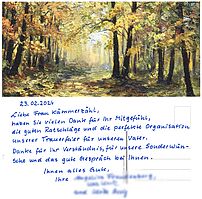 23.02.2024
Liebe Frau Kümmerzähl,
haben Sie vielen Dank für Ihr Mitgefühl,
die guten Ratschläge und die perfekte Organisation
unserer Trauerfeier für unseren Vater.
Danke für Ihr Verständnis, für unsere Sonderwün-
sche und das gute Gespräch bei Ihnen.
Ihnen alles Gute,
Ihre